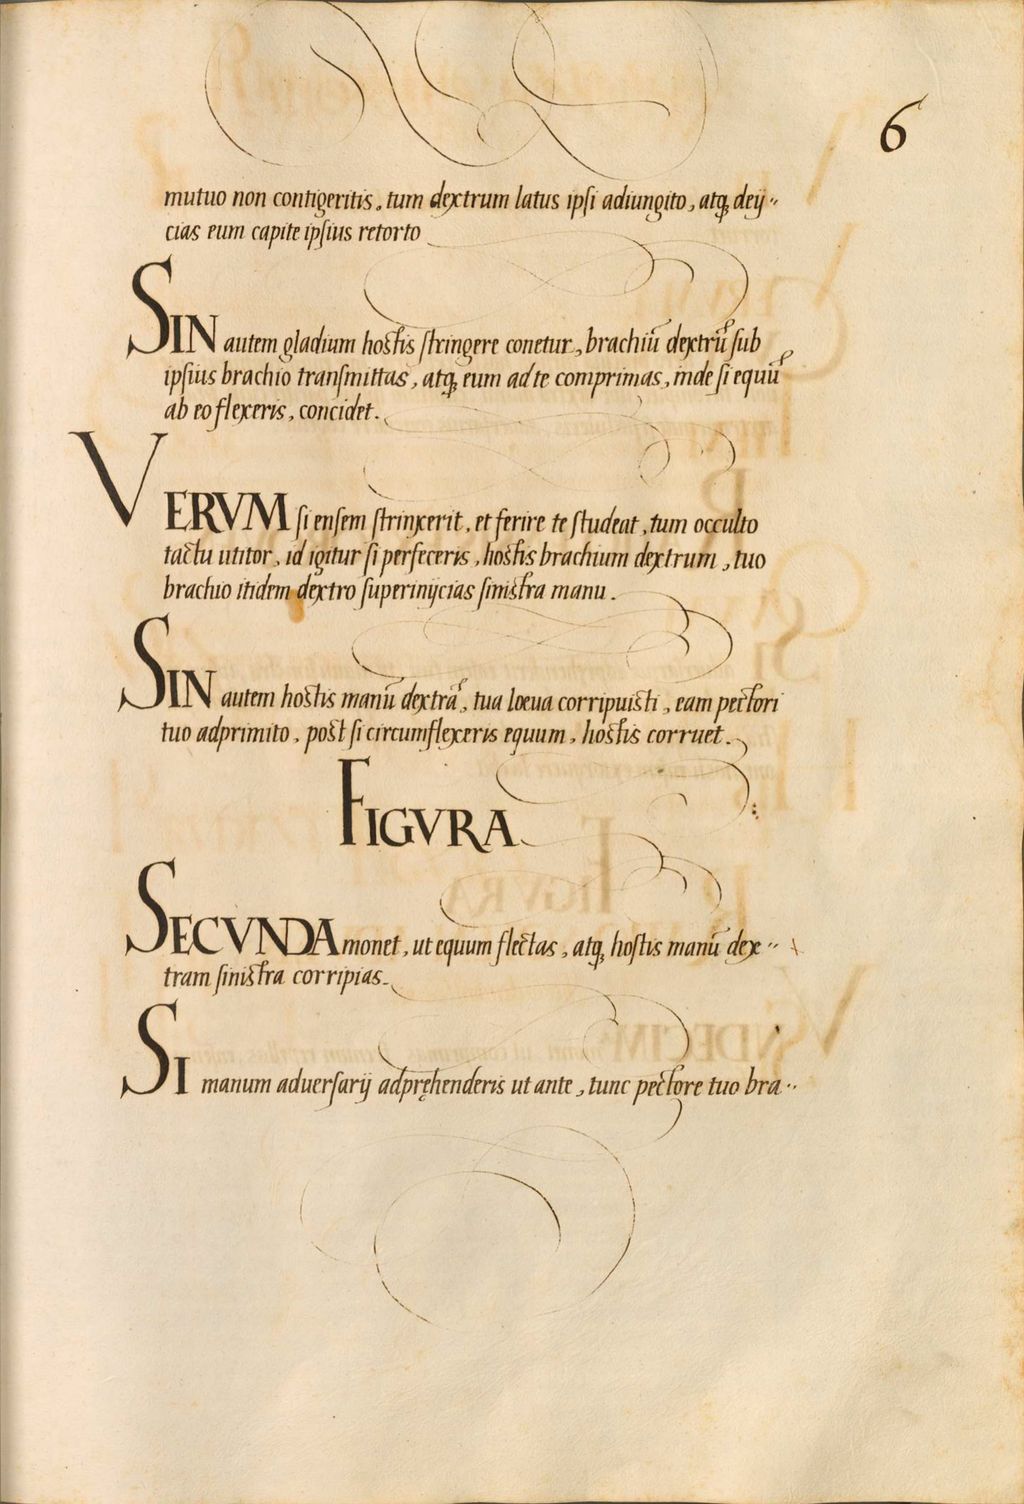 6
mutuo non contigeritis, tum dextrum latus ipsi adiungito, atq; deij''
cias eum capite ipsius retorto
SIN autem gladium hostis stringere conetur, brachiũ dextrũ sub
ipsius brachio transmittas, atq; eum ad te comprimas, inde si equũ
ab eo flexeris, concidet.
VERVM si ensem strinxerit, et ferire te studeat, tum occulto
tactu utitor, id igitur si perfeceris, hostis brachium dextrum, tuo
brachio itidem dextro superinijcias sinistra manu.
SIN autem hostis manũ dextrã, tua loeua corripuisti, eam pectori
tuo adprimito, post si circumflexeris equum, hostis corruet.
FIGVRA
SECVNDA monet, ut equum flectas, atq; hostis manũ dex''
tram sinistra corripias.
SI manum adversarij adpręhenderis ut ante, tunc pectore tuo bra''